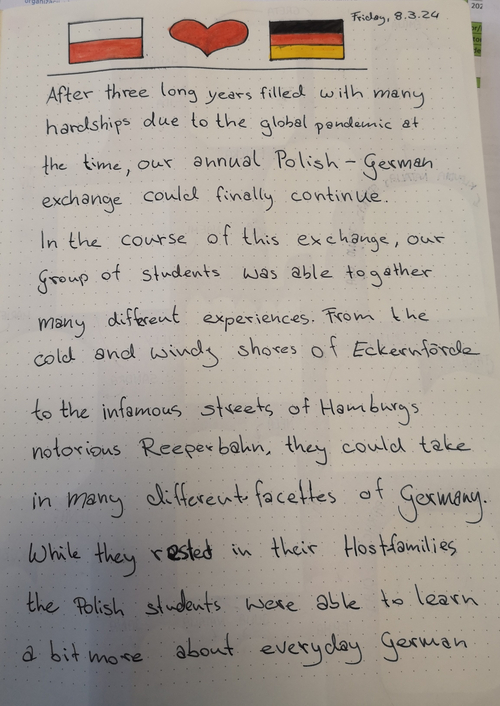 Friday, 8.3.24
After three long years filled with many
hardships due to the global pandemic at
the time, our annual Polish - German
exchange could finally continue.
In the course of this exchange, our
group of students was able to gather
many different experiences. From the
cold and windy shores of Eckernförde
to the infamous streets of Hamburgs
notorious Reeperbahn, they could take
in many different facettes of Germany.
While they rested in their Hostfamilies
the Polish students were able to learn
a bit more about everyday German